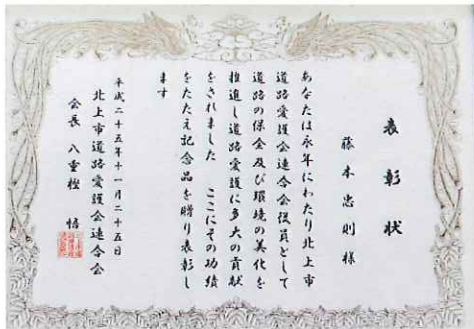 表彰状
藤本忠則様
あなたは永年にわたり北上市
道路愛護会連合会役員として
道路の保全及び環境の美化を
推進し道路愛護に多大の貢献
をされました　ここにその功績
をたたえ記念品を贈り表彰し
ます
平成二十五年十一月二十五日
北上市道路愛護会連合会
会長　八重樫　悟